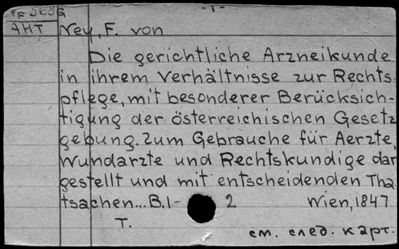 - 1 -
АНТ Ney, F. von
Die gerichtliche Arzneikunde
in ihrem Verhältnisse zur Rechts
pflege, mit besonderer Berücksich-
tigung der österreichischen Gesetz
gebung. Zum Gebrauche für Aerzte,
Wundarzte und Rechtskundige dar
gestellt und mit entscheidenden Tha
tsachen... B. 1- 2 Wien, 1847
T. см. след. карт.